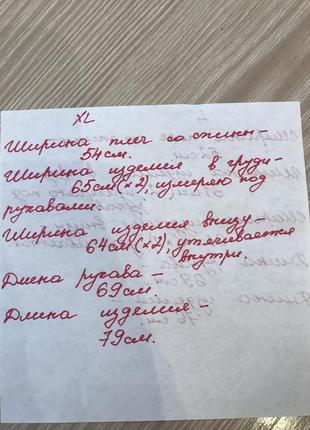 XL
Ширина плеч со спины-
54см.
Ширина изделия в груди-
65см(х2), измеряю под
рукавами.
Ширина изделия внизу-
64см(х2), утягивается
внутри.
Длина рукава-
69см.
Длина изделия-
79см.